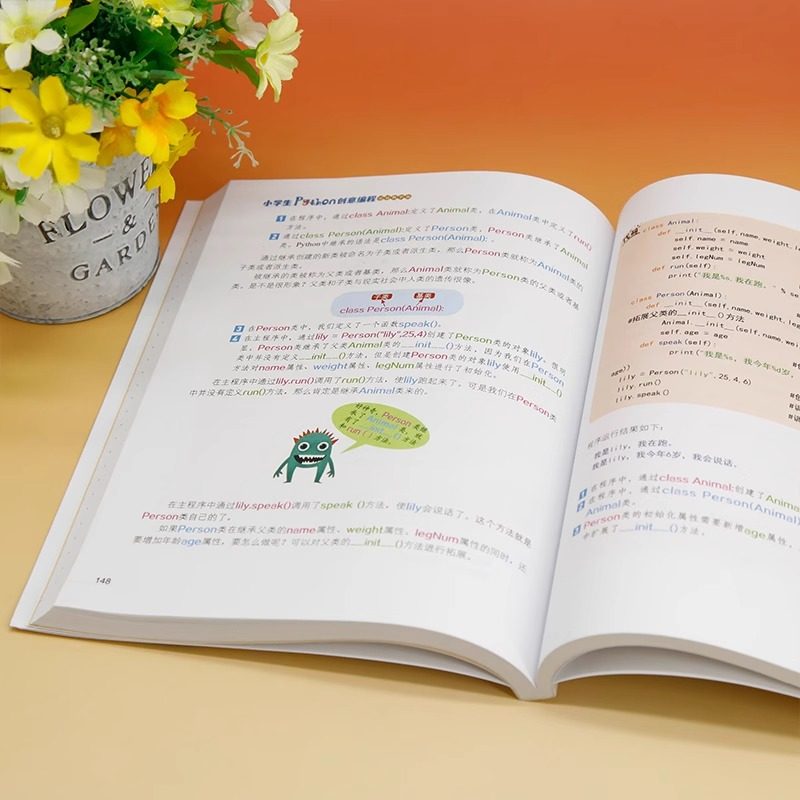 FLOWER
&
GARDEN
小学生Python创意编程
1 在程序中，通过class Animal:定义了Animal类，在Animal类中定义了run()
方法。
2 通过class Person(Animal):定义了Person类，Person类继承了Animal
类。Python中继承的语法是class Person(Animal):。
通过继承创建的新类被命名为子类或者派生类，那么Person类就称为Animal类的
子类或者派生类。
被继承的类被称为父类或者基类，那么Animal类就称为Person类的父类或者基
类。是不是很形象？父类和子类与现实社会中人类的遗传很像。
子类 基类
class Person(Animal):
3 在Person类中，我们定义了一个函数speak()。
4 在主程序中，通过lily = Person("lily",25,4)创建了Person类的对象lily。很明
显，Person类继承了父类Animal类的__init__()方法，因为我们在Person
类中并没有定义__init__()方法，但是创建Person类的对象lily使用__init__()
方法对name属性、weight属性、legNum属性进行了初始化。
在主程序中通过lily.run()调用了run()方法，使lily跑起来了。可是我们在Person类
中并没有定义run()方法，那么肯定是继承Animal类来的。
好神奇，Person类继
承了Animal类，就
有了__init__()方法
和run()方法。
在主程序中通过lily.speak()调用了speak ()方法，使lily会说话了。这个方法就是
Person类自己的了。
如果Person类在继承父类的name属性、weight属性、legNum属性的同时，还
要增加年龄age属性，要怎么做呢？可以对父类的__init__()方法进行拓展。
148
class Animal:
def __init__(self,name,weight,
self.name = name
self.weight = weight
self.legNum = legNum
def run(self):
print("我是%s,我在跑。" %
class Person(Animal):
def __init__(self,name,weight,legNum
#拓展父类的__init__()方法
Animal.__init__(self,name,we
self.age = age
def speak(self):
print("我是%s, 我今年%d岁,
age))
lily = Person("lily", 25, 4, 6)
lily.run()
lily.speak()
程序运行结果如下：
我是lily，我在跑。
我是lily，我今年6岁，我会说话。
1 在程序中，通过class Animal:创建了Animal
2 在程序中，通过class Person(Animal)
Animal类。
3 Person类的初始化属性需要新增age属性，
中扩展了__init__()方法。